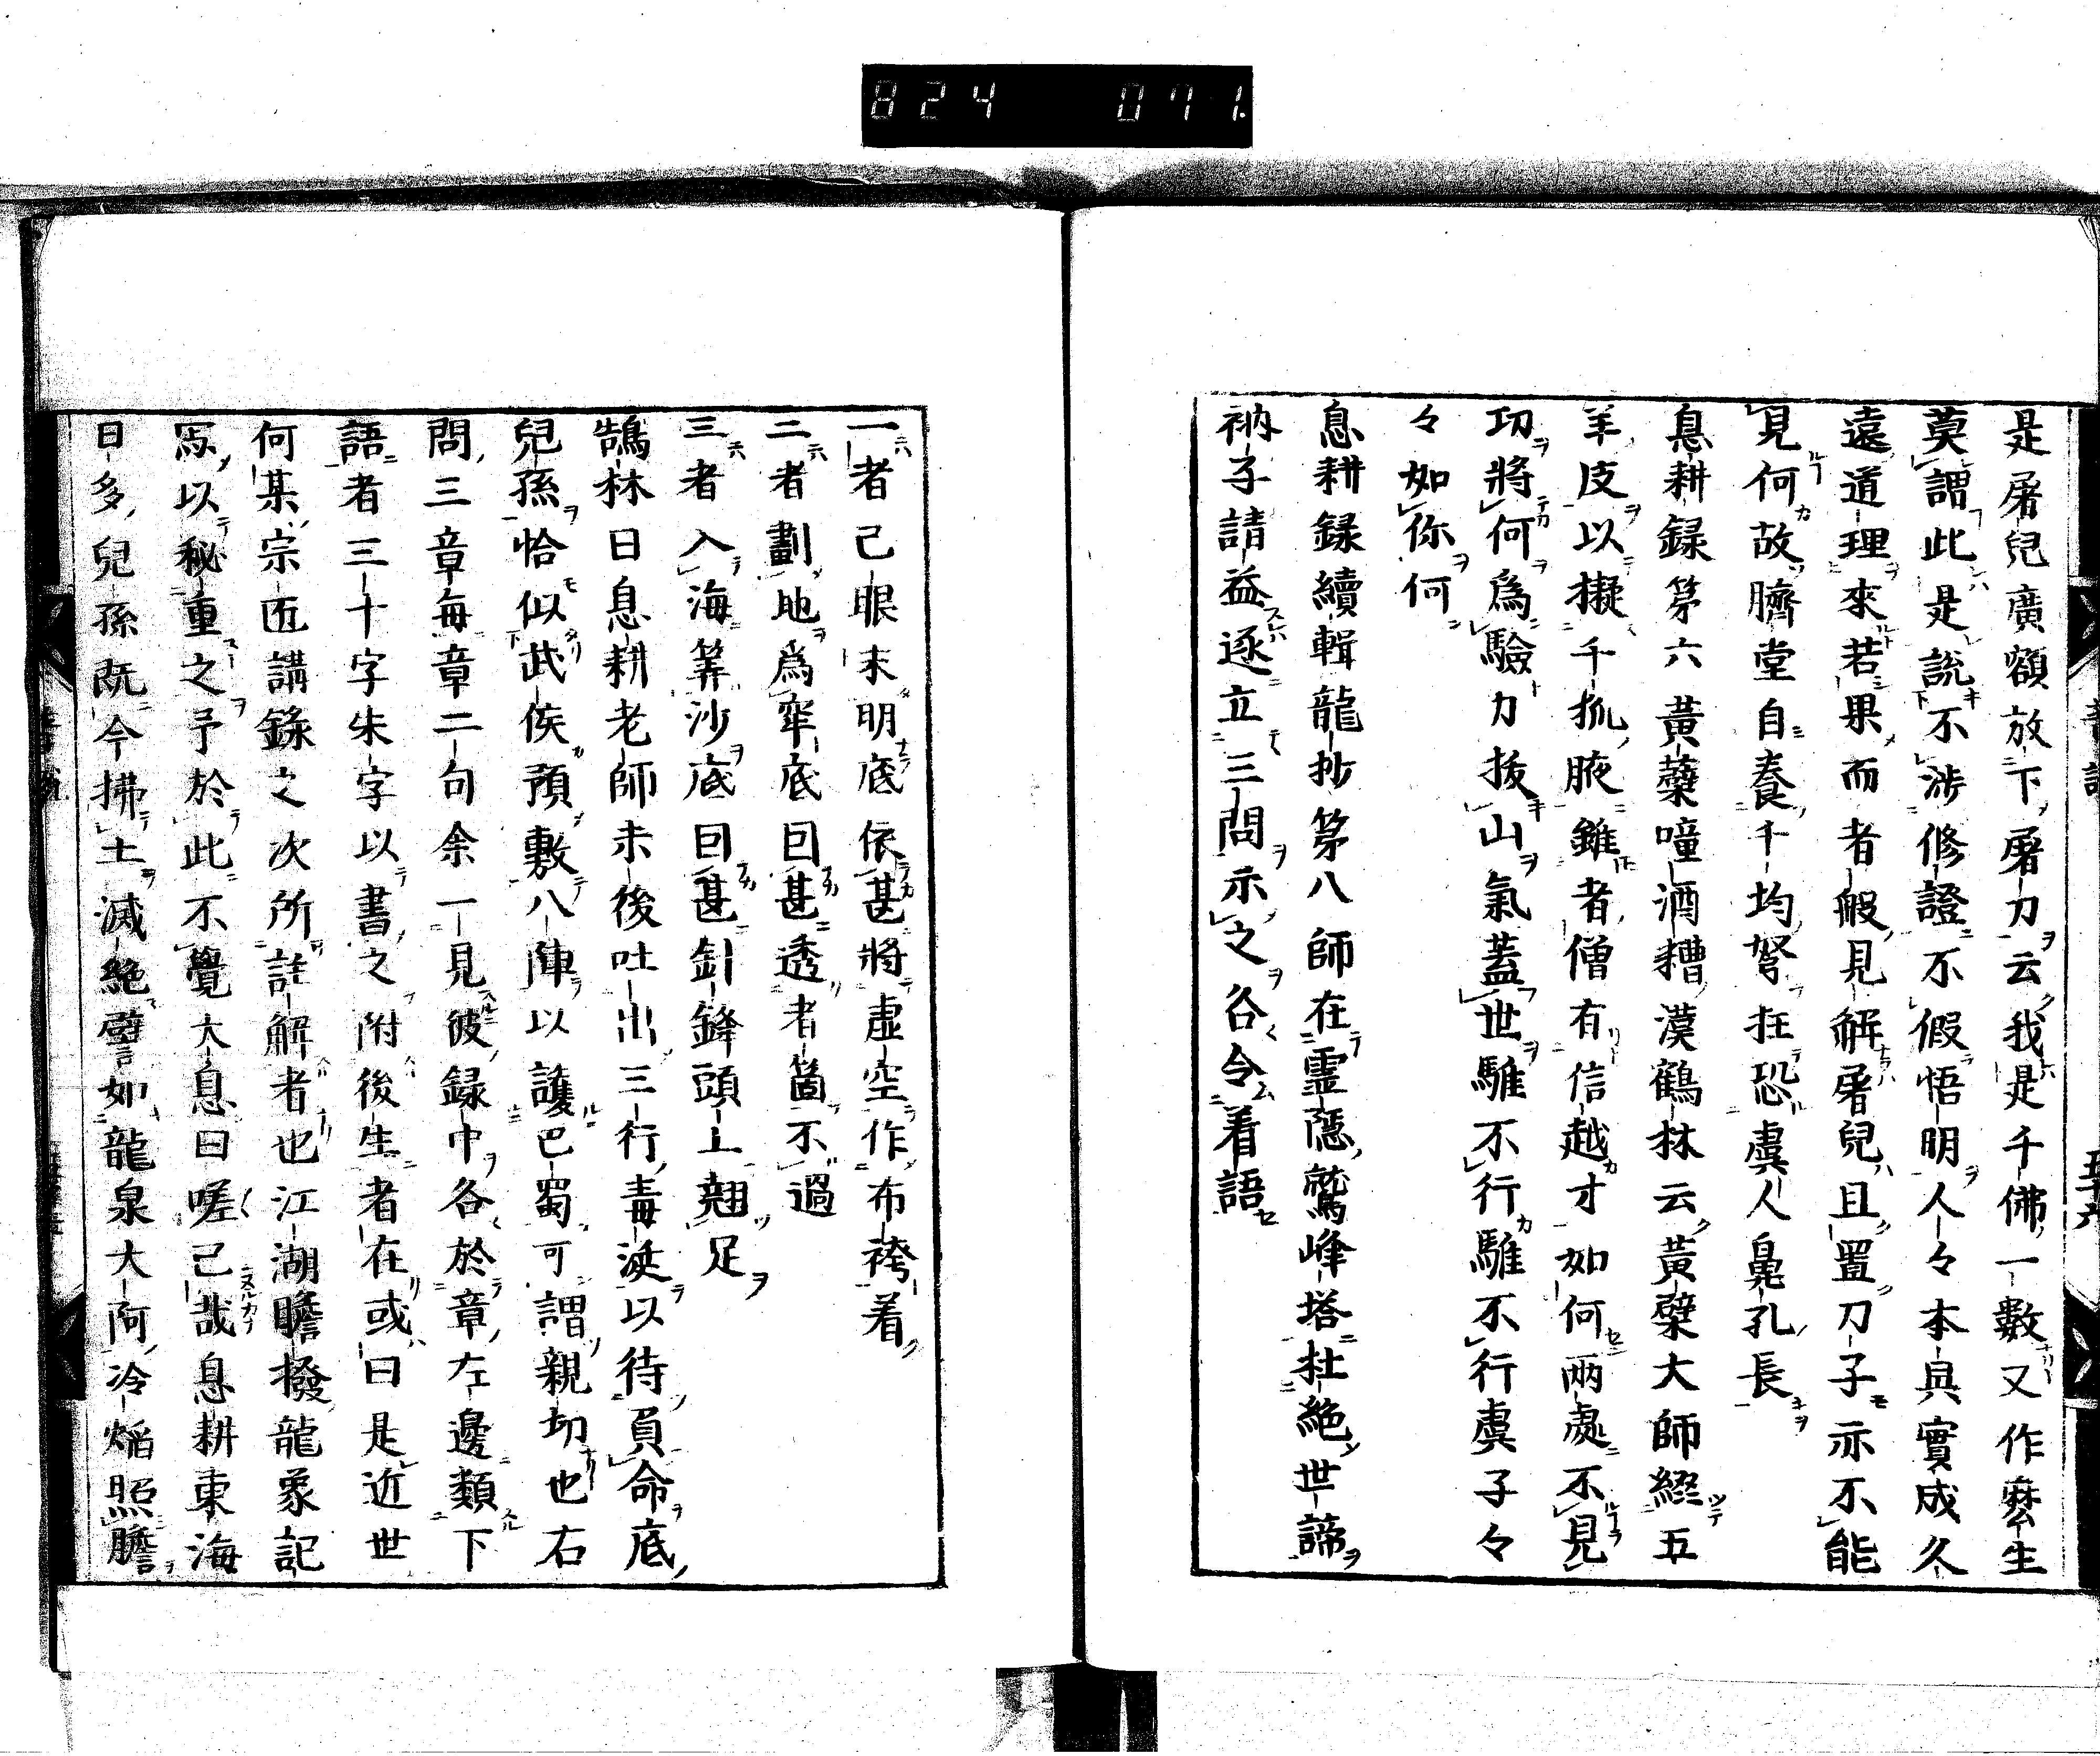 824 071.
是屠兒廣額放下屠刀云我是千佛一數又作麼生
莫謂此是説不渉修證不假悟明人々本具實成久
遠道理來若果而者般見解屠兒且置刀子亦不能
見何故臍堂自養千均弩狂恐虞人鼻孔長
息耕録第六黄蘗噇酒糟漢鶴林云黄檗大師綴五
羊皮以擬千狐腋雖者僧有信越才如何兩處不見
功將何為驗力拔山氣蓋世騅不行騅不行虞子々
々如你何
息耕録續輯龍抄第八師在霊隱鷲峰塔杜絶世諦
衲子請益遂立三問示之各令着語
一者己眼未明底依甚將虚空作布袴着
二者劃地為牢底因甚透者箇不過
三者入海筭沙底因甚針鋒頭上翹足
鵠林曰息耕老師末後吐出三行毒涎以待負命底
兒孫恰似武侯預敷八陣以護巴蜀可謂親切也右
問三章毎章二句余一見彼録中各於章左邊類下
語者三十字朱字以書之附後生者在或曰是近世
何某宗匠講錄之次所註解者也江湖瞻撥龍象記
寫以秘重之予於此不覺大息曰嗟己哉息耕東海
日多兒孫既今拂土滅絶譬如龍泉大阿冷焔照膽